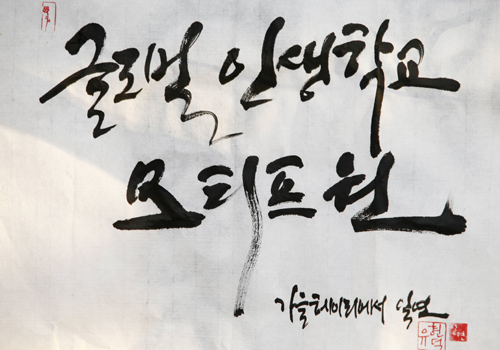 글로벌 인생학교
모티프원
가을 헤이리에서